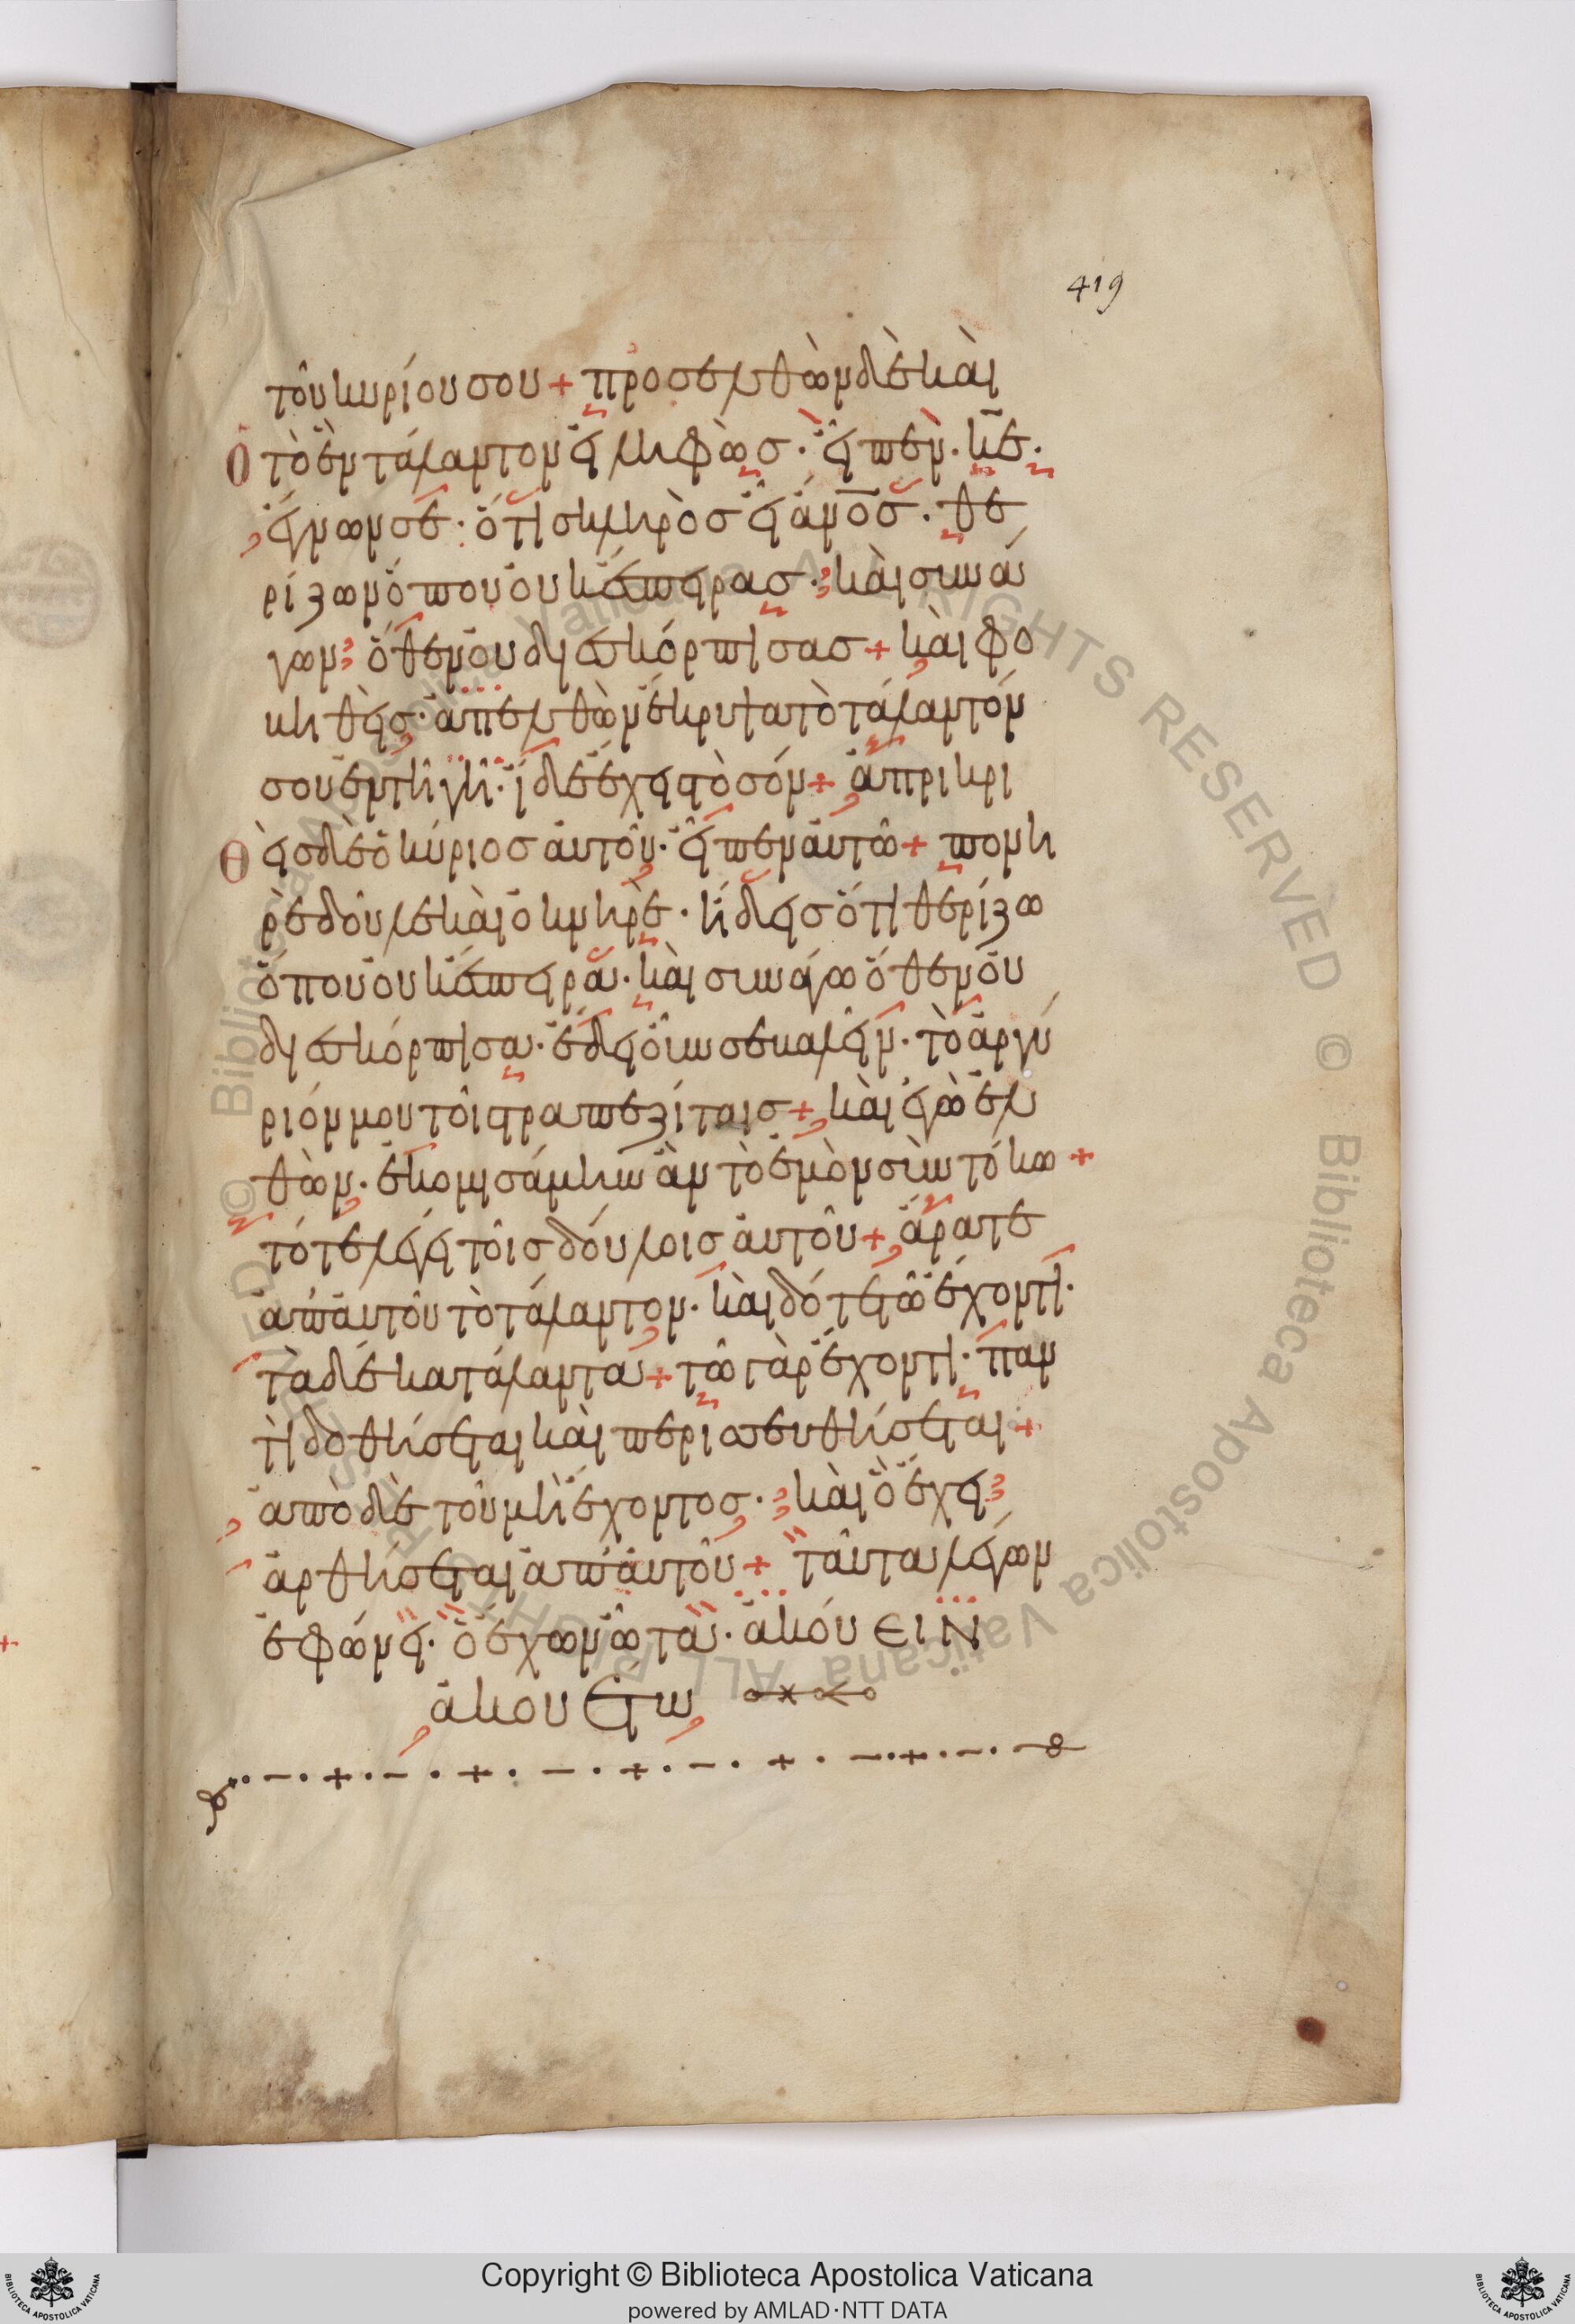 419
τοῦ κυρίου σου + προσελθὼν δὲ καὶ
ὁ τὸ ἓν τάλαντον εἰληφὼσ· εἶπεν· κ̅ε̅·
ἔγνων σε· ὅτι σκληρὸσ εἶ ἀν̅ο̅σ̅· θε
ρίζων ὅπου οὐκ ἔσπειρασ· καὶ συνά
γων ὅθεν οὐ διεσκόρπισασ + καὶ φο
βηθεὶσ· ἀπελθὼν ἔκρυψα τὸ τάλαντόν
σου ἐν τῆ γῆ· ἴδε ἔχεις τὸ σόν + ἀποκρι
θεὶσ δὲ ὁ κύριοσ αὐτοῦ· εἶπεν αὐτῶ + πονη
ρὲ δοῦλε καὶ ὀκνηρὲ· ἤδεισ ὅτι θερίζω
ὅπου οὐκ ἔσπειρα· καὶ συνάγω ὅθεν οὐ
διεσκόρπισα· ἔδει οὖν σε βαλεῖν· τὸ ἀργύ
ριόν μου τοῖς τραπεζίταισ + καὶ ἐγὼ ἐλ
θὼν· ἐκομισάμην ἂν τὸ ἐμὸν σὺν τόκω +
τότε λέγει τοῖσ δούλοισ αὐτοῦ + ἄρατε
ἀπ' αὐτοῦ τὸ τάλαντον· καὶ δότε τῶ ἔχοντι·
τὰ δέκα τάλαντα + τῶ γὰρ ἔχοντι· παν
τὶ δοθήσεται καὶ περισσευθήσεται +
ἀπὸ δὲ τοῦ μὴ ἔχοντοσ· καὶ ὃ ἔχει
ἀρθήσεται ἀπ' αὐτοῦ + ταῦτα λέγων
ἐφώνει· ὁ ἔχων ὦτα· ἀκούειν
ἀκουέτω
Copyright © Biblioteca Apostolica Vaticana
powered by AMLAD·NTT DATA
© Biblioteca Apostolica Vaticana ALL RIGHTS RESERVED © Biblioteca Apostolica Vaticana ALL RIGHTS RESERVED